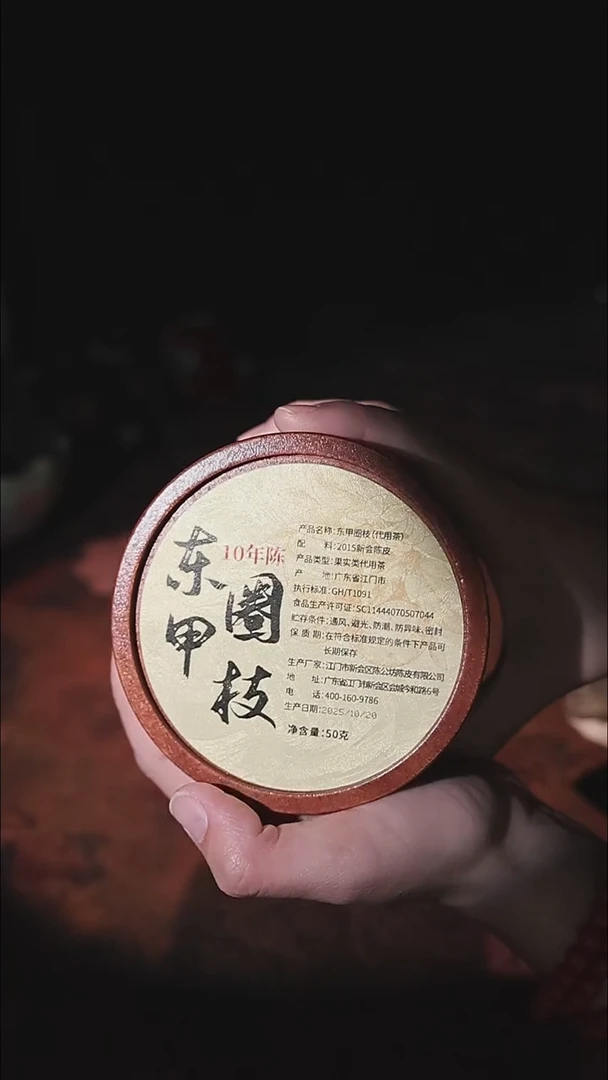 东甲
10年陈
圈枝
产品名称:东甲圈枝(代用茶)
配 料:2015新会陈皮
产品类型:果实类代用茶
产 地:广东省江门市
执行标准:GH/T1091
食品生产许可证:SC11444070507044
贮存条件:通风、避光、防潮、防异味、密封
保质期:在符合标准规定的条件下产品可
长期保存
生产厂家:江门市新会区陈公坊陈皮有限公司
地 址:广东省江门市新会区会城今和路6号
电 话:400-160-9786
生产日期:2025/10/20
净含量:50克